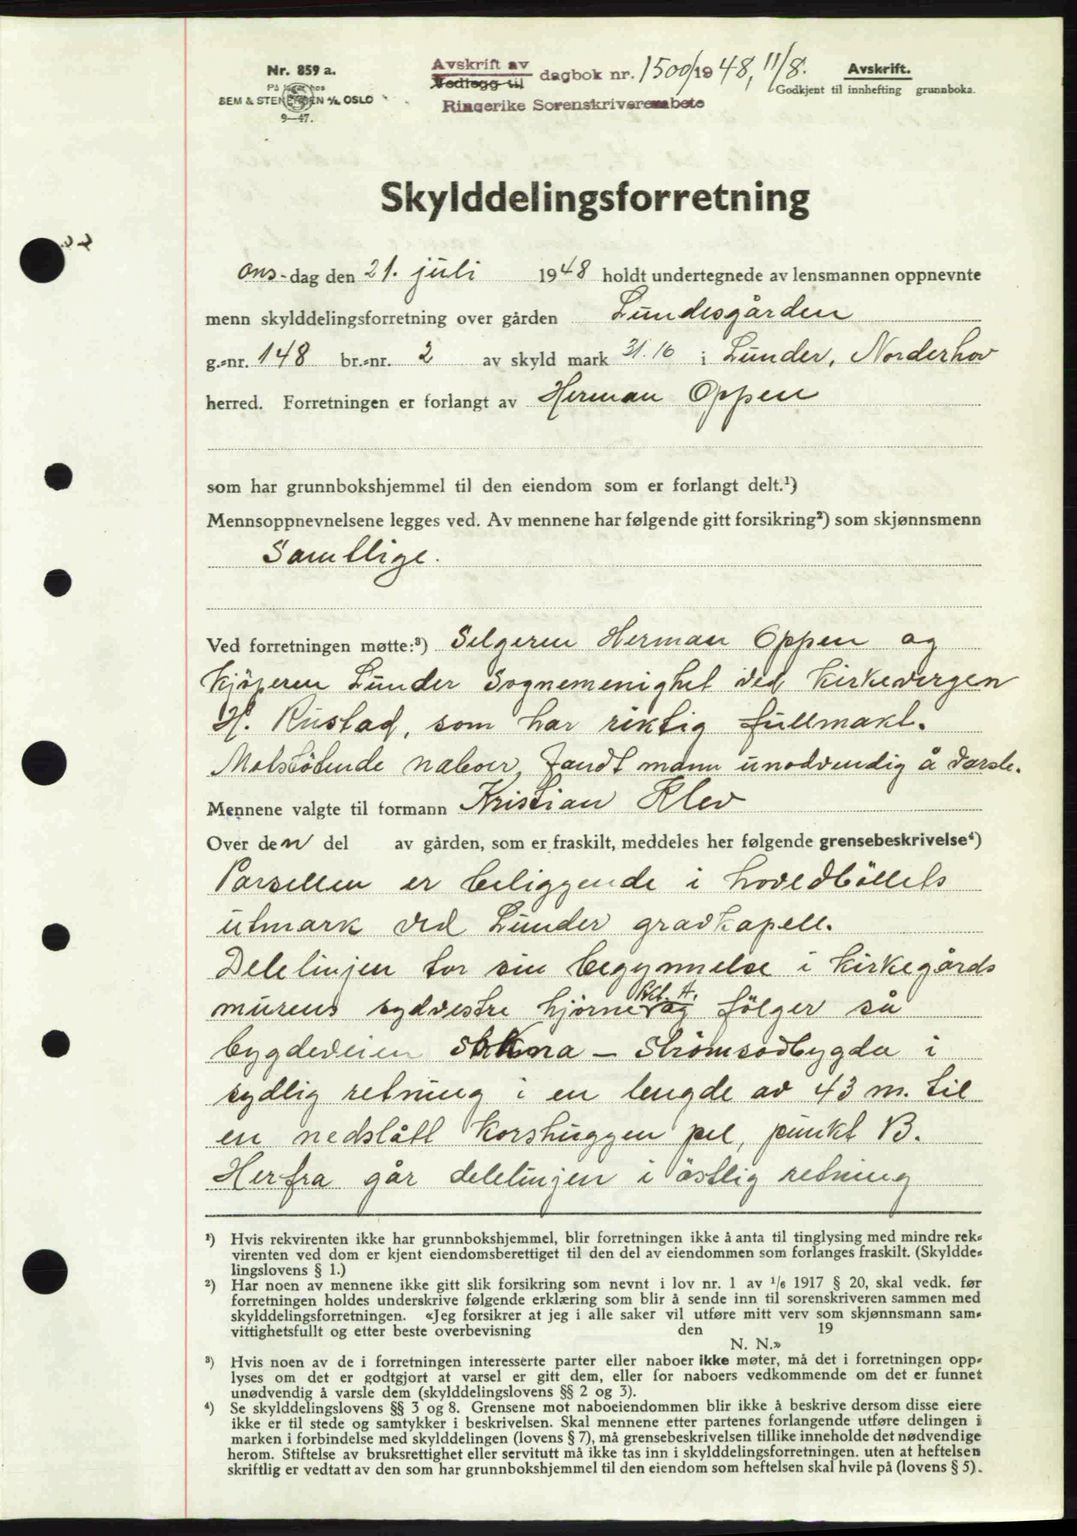 Nr. 859 a.
På lager hos
SEM & STENERSEN A/S, OSLO
9—47.
Avskrift av
Vedlegg til dagbok nr. 1500/1948, 11/8.
Ringerike Sorenskriverembete
Avskrift.
Godkjent til innhefting i grunnboka.
Skylddelingsforretning
ons-dag den 21. juli 1948 holdt undertegnede av lensmannen oppnevnte
menn skylddelingsforretning over gården Lundesgården
g.-nr. 148 br.-nr. 2 av skyld mark 31.16 i Lunder, Norderhov
herred. Forretningen er forlangt av Herman Oppen
som har grunnbokshjemmel til den eiendom som er forlangt delt.¹)
Mennsoppnevnelsene legges ved. Av mennene har følgende gitt forsikring²) som skjønnsmenn
Samtlige.
Ved forretningen møtte:³) Selgeren Herman Oppen og
kjöperen Lunder Sognemenighet ved kirkevergen
H. Rustad, som har riktig fullmakt.
Motstötende naboer, fandt menn unødvendig å varsle.
Mennene valgte til formann Kristian Klev
Over den del av gården, som er fraskilt, meddeles her følgende grensebeskrivelse⁴)
Parsellen er beliggende i hovedböllets
utmark ved Lunder gravkapell.
Delelinjen tar sin begynnelse i kirkegårds
murens sydvestre hjörne, pkt. A. og fölger så
bygdeveien – Strömsodbygda i
sydlig retning i en lengde av 43 m. til
en nedslått korshuggen pel, punkt B.
Herfra går delelinjen i östlig retning
¹) Hvis rekvirenten ikke har grunnbokshjemmel, blir forretningen ikke å anta til tinglysing med mindre rek-
virenten ved dom er kjent eiendomsberettiget til den del av eiendommen som forlanges fraskilt. (Skyldde-
lingslovens § 1.)
²) Har noen av mennene ikke gitt slik forsikring som nevnt i lov nr. 1 av 1/6 1917 § 20, skal vedk. før
forretningen holdes underskrive følgende erklæring som blir å sende inn til sorenskriveren sammen med
skylddelingsforretningen. «Jeg forsikrer at jeg i alle saker vil utføre mitt verv som skjønnsmann sam-
vittighetsfullt og etter beste overbevisning den 19
N. N.»
³) Hvis noen av de i forretningen interesserte parter eller naboer ikke møter, må det i forretningen opp-
lyses om det er godtgjort at varsel er gitt dem, eller for naboers vedkommende om det er funnet
unødvendig å varsle dem (skylddelingslovens §§ 2 og 3).
⁴) Se skylddelingslovens §§ 3 og 8. Grensene mot naboeiendommen blir ikke å beskrive dersom disse eiere
ikke er til stede og samtykker i beskrivelsen. Skal mennene etter partenes forlangende utføre delingen i
marken i forbindelse med skylddelingen (lovens § 7), må grensebeskrivelsen tillike inneholde det nødvendige
herom. Stiftelse av bruksrettighet eller servitutt må ikke tas inn i skylddelingsforretningen. uten at heftelsen
skriftlig er vedtatt av den som har grunnbokshjemmel til den eiendom som heftelsen skal hvile på (lovens § 5).